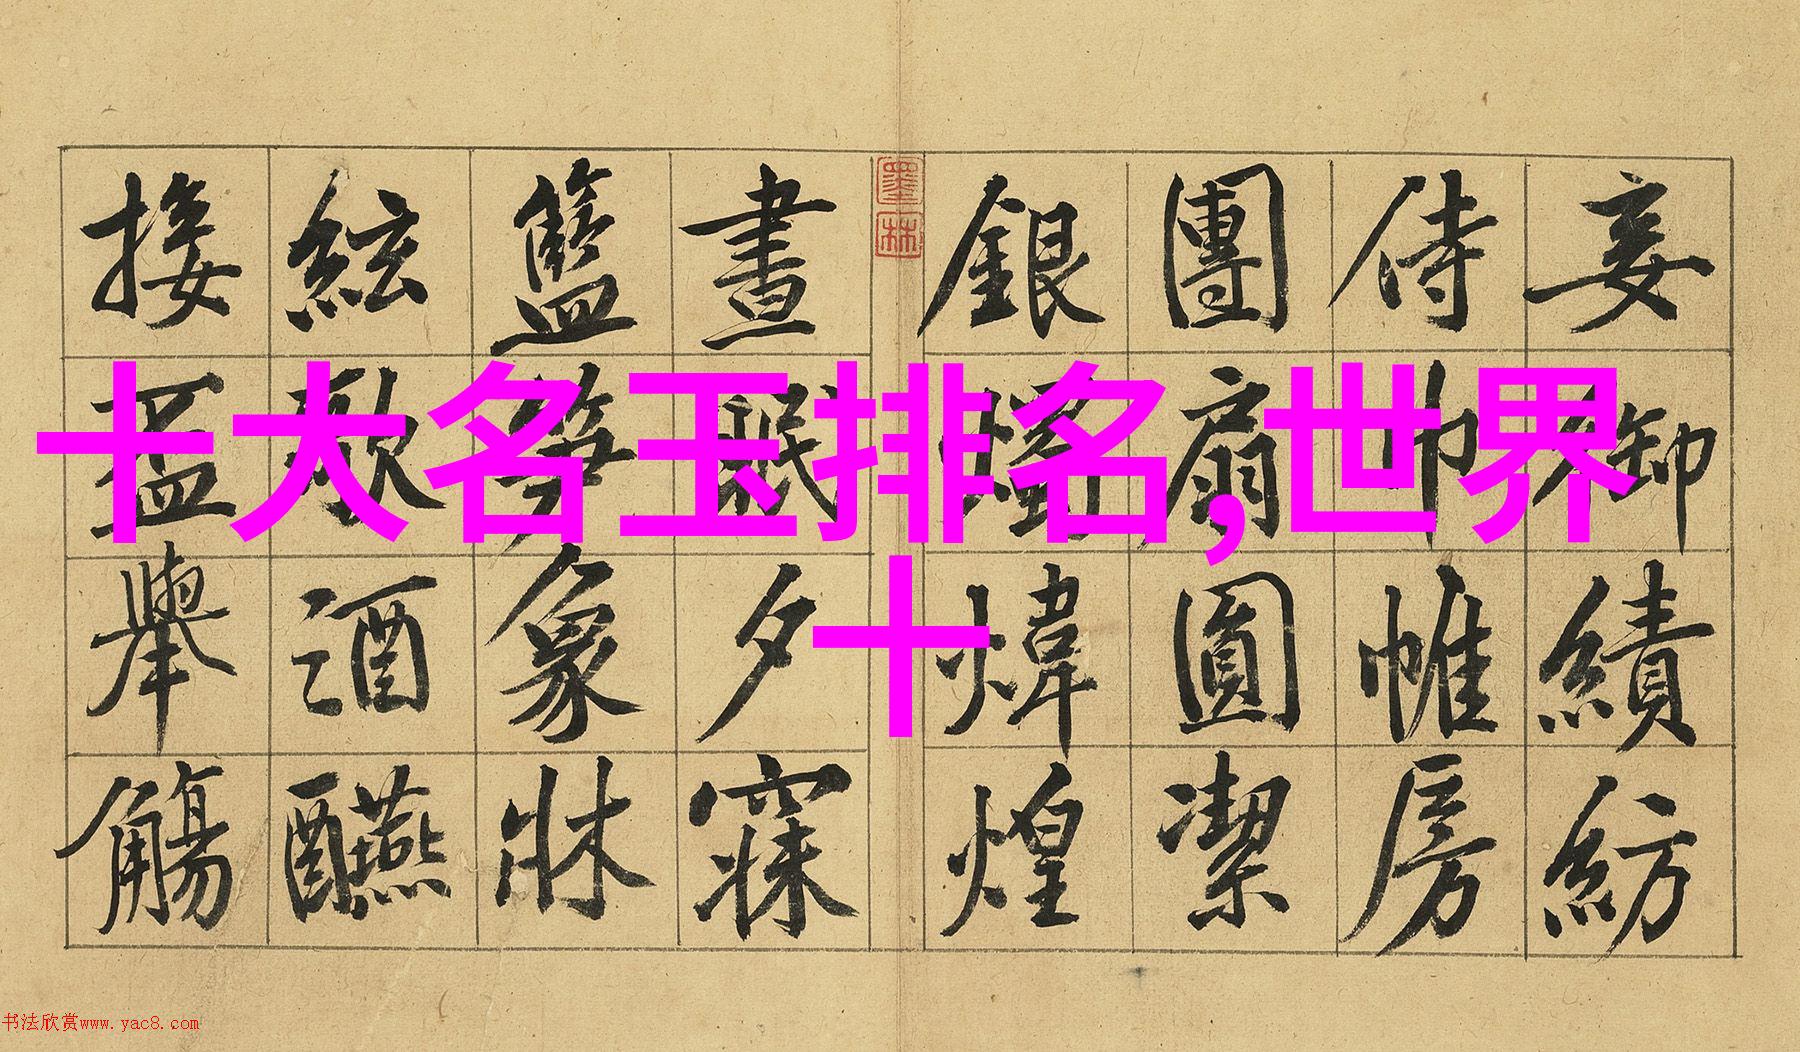 妾御績紡
侍巾帷房
團扇圓潔
銀燭煒煌
墨林
晝眠夕寐
籃笋象牀
絃歌酒醼
接盃舉觴
十大名玉排名,世界
十
书法欣赏www.yac8.com